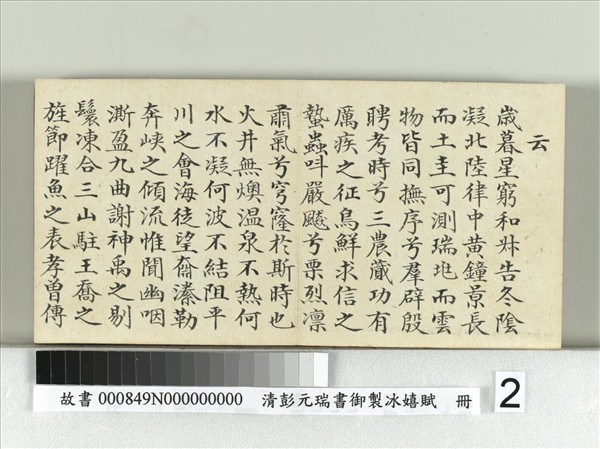 云
歲暮星窮和叔告冬陰
凝北陸律中黄鐘景長
而土圭可測瑞兆而雲
物皆同撫序兮羣辟殷
聘考時兮三農蕆功有
厲疾之征鳥鮮求信之
蟄蟲叫嚴飈兮栗烈凛
肅氣兮穹窿於斯時也
火井無燠温泉不熱何
水不凝何波不結阻平
川之會海徒望奫瀠勒
奔峽之傾流惟聞幽咽
澌盈九曲謝神禹之剔
鬟凍合三山駐王喬之
旌節躍魚之表孝曾傳
故書 000849N000000000 清彭元瑞書御製冰嬉賦 冊
2